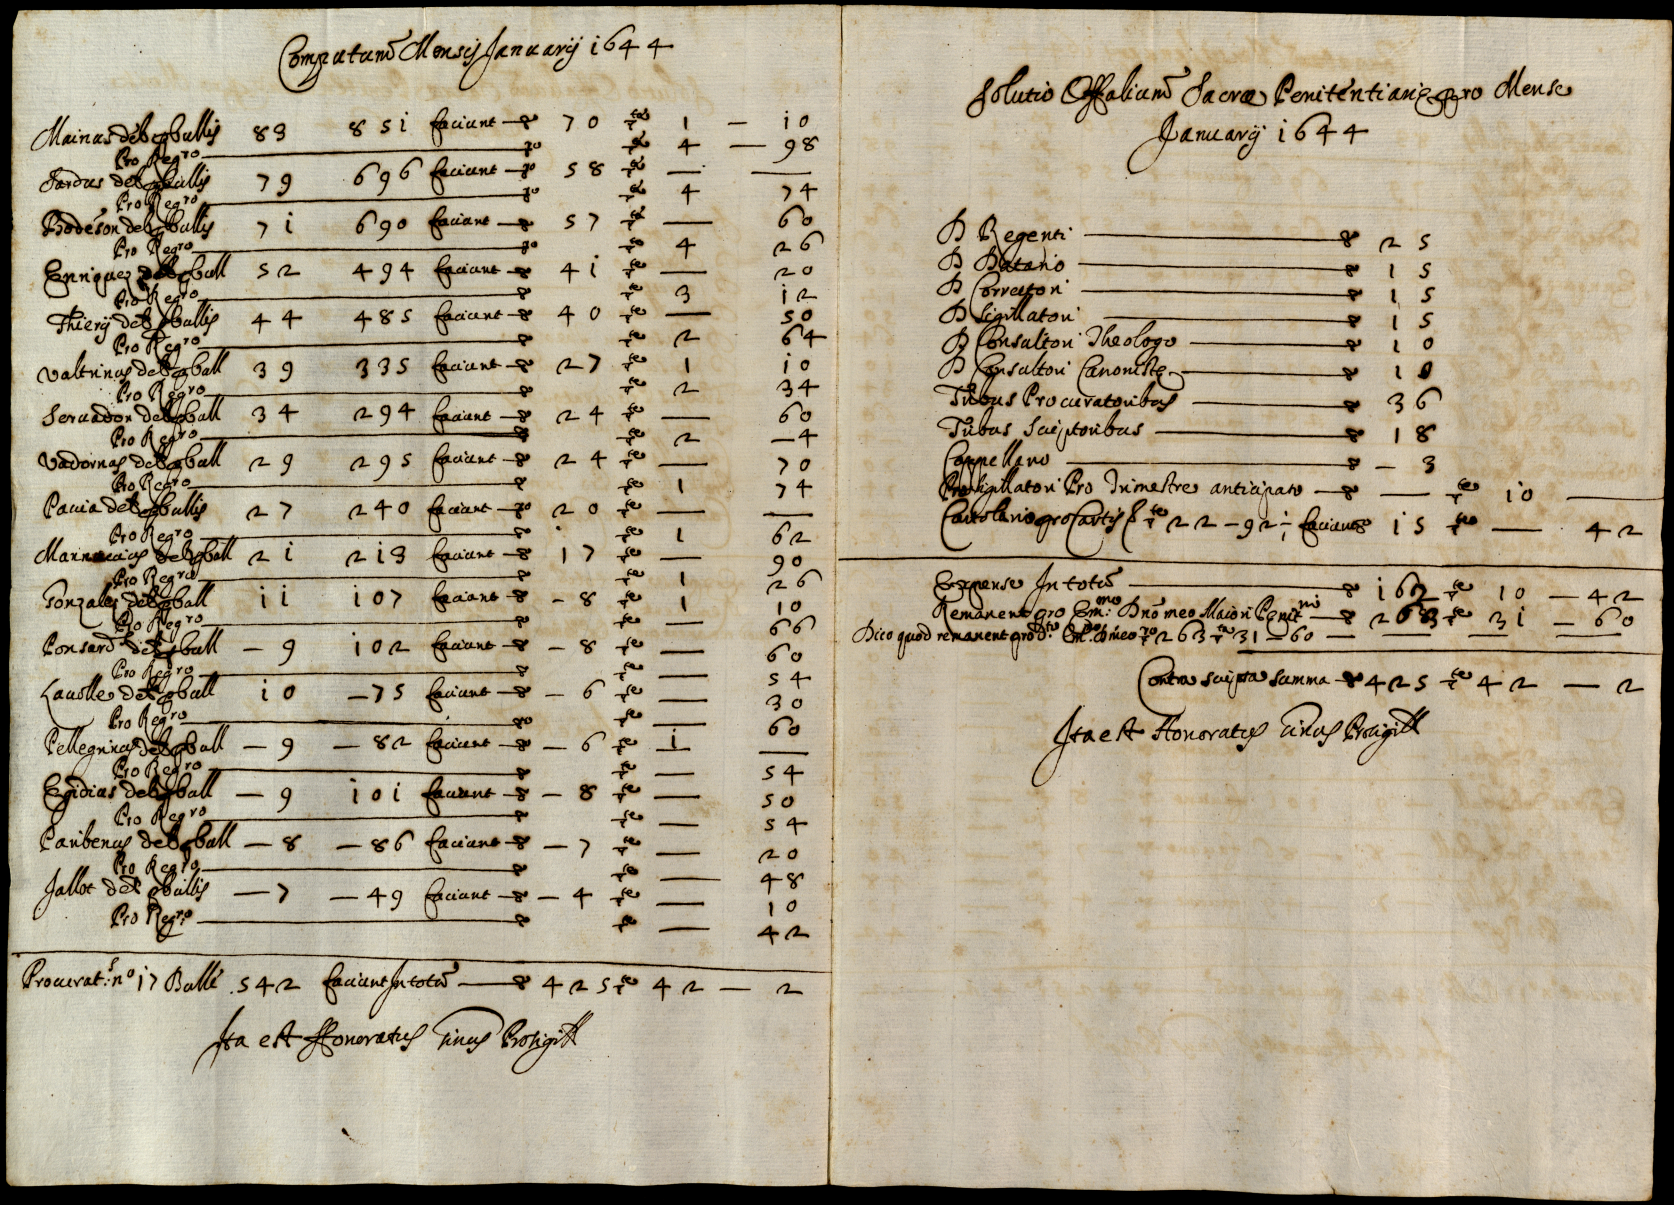 Computum Mensis Januarij 1644
Mainus debet pro bullis 83 851 faciunt 70 1 — 10
Pro Regro 4 — 98
Jardus debet pro bullis 79 696 faciunt 58 — —
Pro Regro 4 74
Bodeson debet pro bullis 71 690 faciunt 57 — 60
Pro Regro 4 26
Enriquez debet pro bull 52 494 faciunt 41 — 20
Pro Regro 3 12
Thierij debet pro bullis 44 485 faciunt 40 — 50
Pro Regro 2 64
Valtrinus debet pro bull 39 335 faciunt 27 1 10
Pro Regro 2 34
Seruadon debet pro bull 34 294 faciunt 24 — 60
Pro Regro 2 — 4
Vadornas debet pro bull 29 295 faciunt 24 — 70
Pro Regro 1 74
Pauia debet pro bullis 27 240 faciunt 20 — —
Pro Regro 1 62
debet pro bull 21 213 faciunt 17 — 90
Pro Regro 1 26
Gonzales debet pro bull 11 107 faciunt — 8 1 10
Pro Regro — 66
Ponsard debet pro bull — 9 102 faciunt — 8 — 60
Pro Regro — 54
Lauolle debet pro bull 10 — 75 faciunt — 6 — 30
Pro Regro — 60
Pellegrinus debet pro bull — 9 — 82 faciunt — 6 1 —
Pro Regro — 54
Egidius debet pro bull — 9 101 faciunt — 8 — 50
Pro Regro — 54
Paribenus debet pro bull — 8 — 86 faciunt — 7 — 20
Pro Regro — 48
Jallot debet pro bullis — 7 — 49 faciunt — 4 — 10
Pro Regro — 42
Procurat.s no 17 Bulle 542 faciunt In totum 425 42 — 2
Ita est Honoratus Prosigill
Solutio Offalium Sacræ Penitentiariæ pro Mense
Januarij 1644
D Regenti 25
D Datario 15
D Correctori 15
D Sigillatori 15
D Consultori Theologo 10
D Consultori Canonistæ 10
Tribus Procuratoribus 36
Tribus Scriptoribus 18
Cappellano — 3
Prosigillatori Pro Trimestre anticipato — 10 —
Cartolario pro Cartis 22 — 92½ faciunt 15 — 42
Expensæ In totum 162 10 — 42
Remanent pro Emmo Dno meo Maiori Penitrio 263 31 — 60
Dico quod remanent pro do Emo Dno meo 263 31 — 60 — — —
Contra scripta summa 425 42 — 2
Ita est Honoratus Prosigill